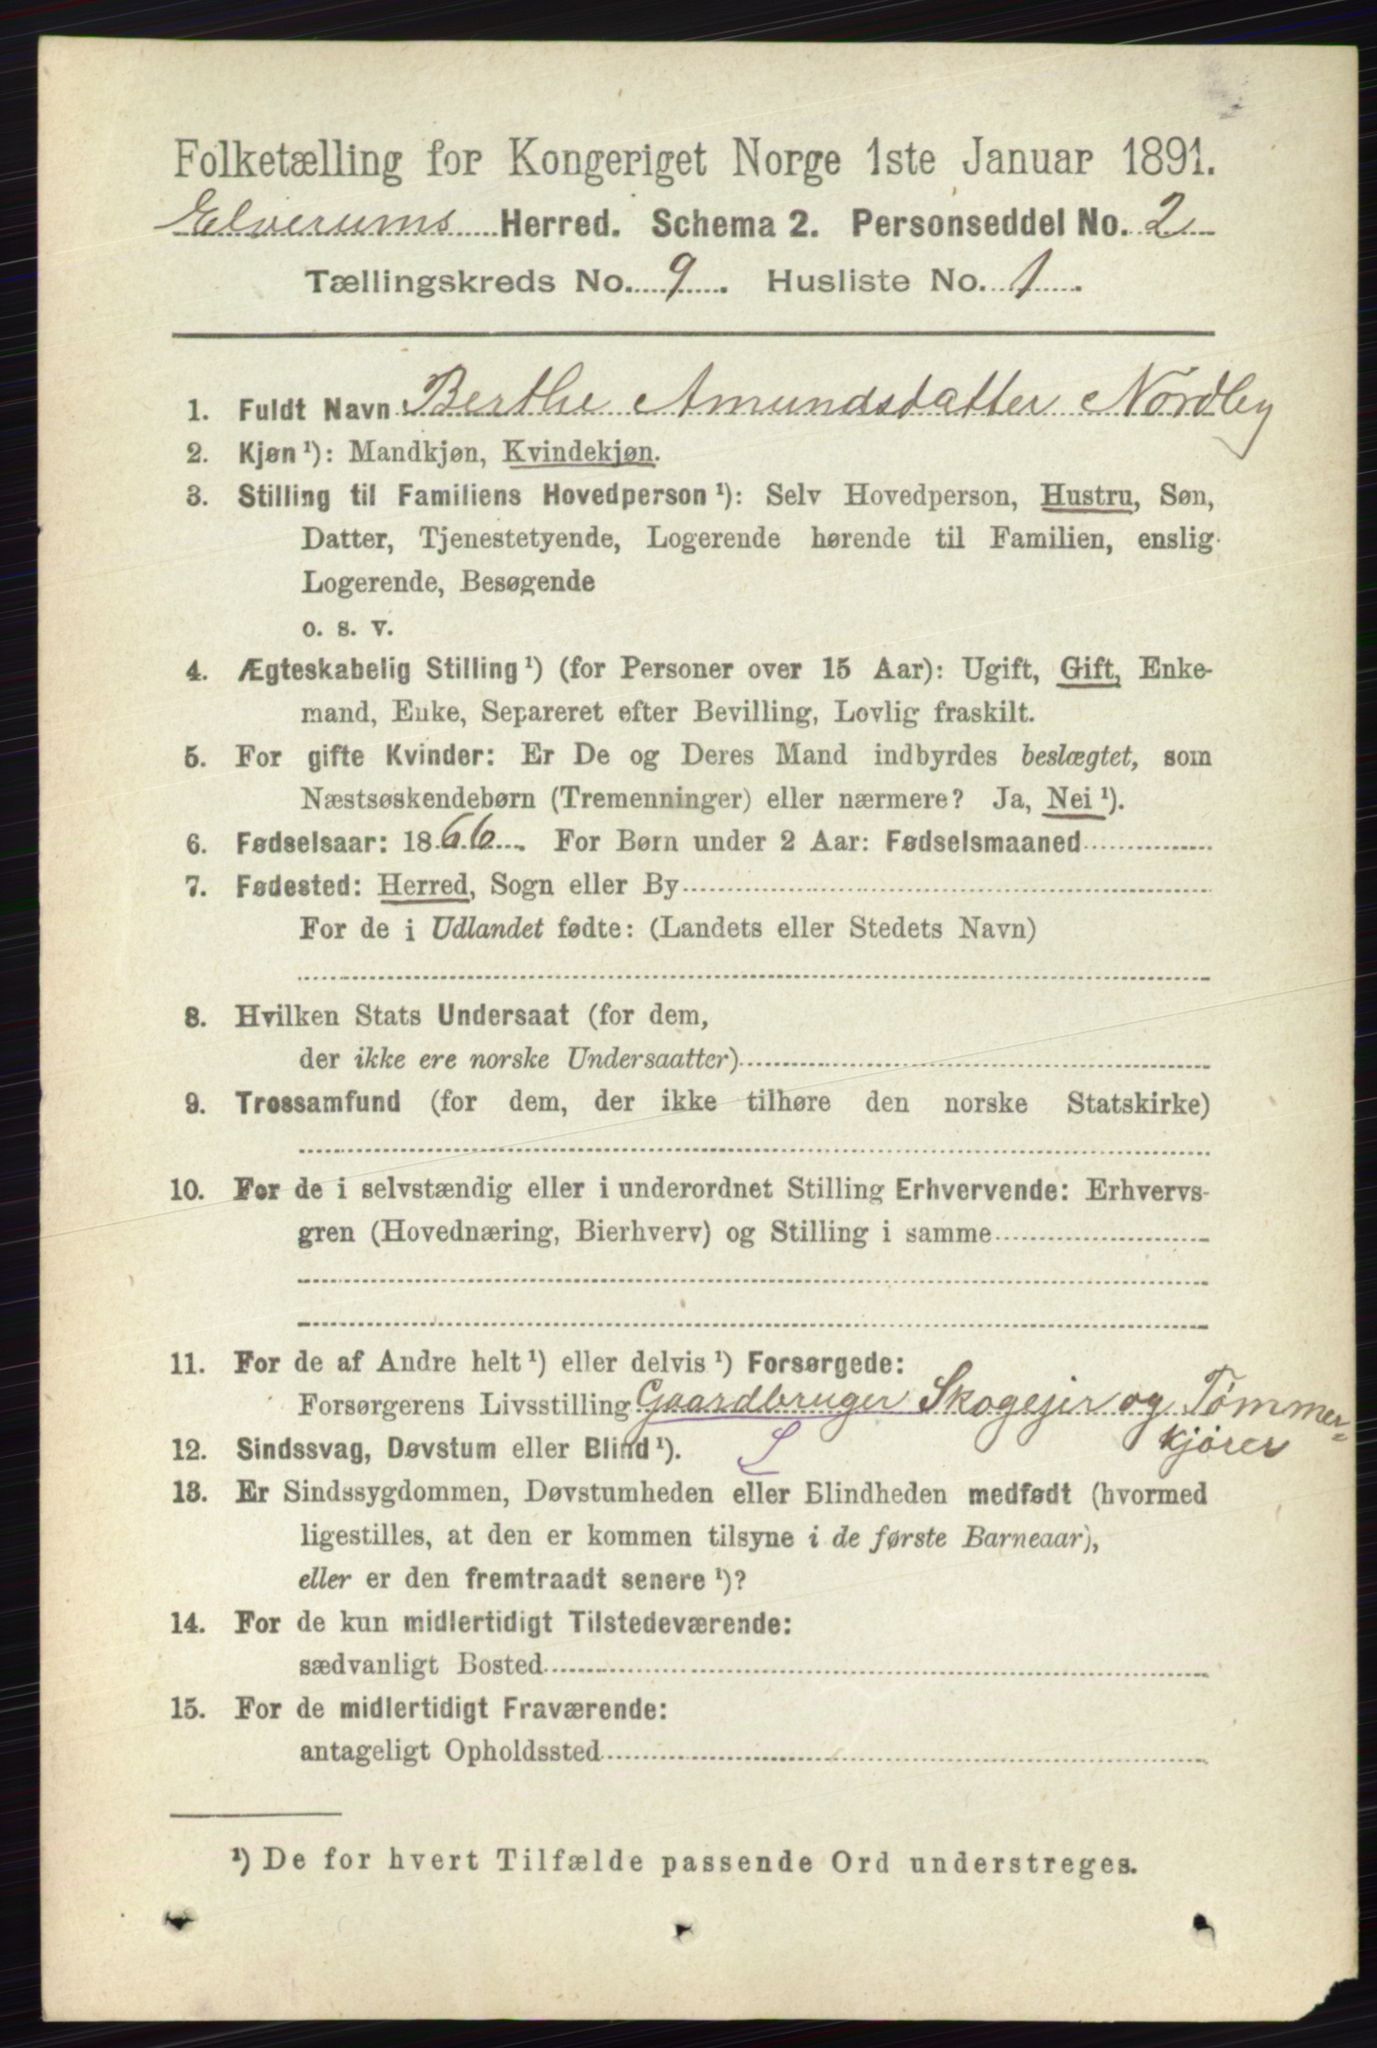 Folketælling for Kongeriget Norge 1ste Januar 1891.
Elverums Herred. Schema 2. Personseddel No. 2
Tællingskreds No. 9. Husliste No. 1.
1. Fuldt Navn Berthe Amundsdatter Nordby
2. Kjøn ¹): Mandkjøn, Kvindekjøn.
3. Stilling til Familiens Hovedperson ¹): Selv Hovedperson, Hustru, Søn,
Datter, Tjenestetyende, Logerende hørende til Familien, enslig
Logerende, Besøgende
o. s. v.
4. Ægteskabelig Stilling ¹) (for Personer over 15 Aar): Ugift, Gift, Enke-
mand, Enke, Separeret efter Bevilling, Lovlig fraskilt.
5. For gifte Kvinder: Er De og Deres Mand indbyrdes beslægtet, som
Næstsøskendebørn (Tremenninger) eller nærmere? Ja, Nei ¹).
6. Fødselsaar: 1866. For Børn under 2 Aar: Fødselsmaaned
7. Fødested: Herred, Sogn eller By
For de i Udlandet fødte: (Landets eller Stedets Navn)
8. Hvilken Stats Undersaat (for dem,
der ikke ere norske Undersaatter)
9. Trossamfund (for dem, der ikke tilhøre den norske Statskirke)
10. For de i selvstændig eller i underordnet Stilling Erhvervende: Erhvervs-
gren (Hovednæring, Bierhverv) og Stilling i samme
11. For de af Andre helt ¹) eller delvis ¹) Forsørgede:
Forsørgerens Livsstilling Gaardbruger Skogejer og Tømmer-
kjører
12. Sindssvag, Døvstum eller Blind ¹). L
13. Er Sindssygdommen, Døvstumheden eller Blindheden medfødt (hvormed
ligestilles, at den er kommen tilsyne i de første Barneaar),
eller er den fremtraadt senere ¹)?
14. For de kun midlertidigt Tilstedeværende:
sædvanligt Bosted
15. For de midlertidigt Fraværende:
antageligt Opholdssted
¹) De for hvert Tilfælde passende Ord understreges.